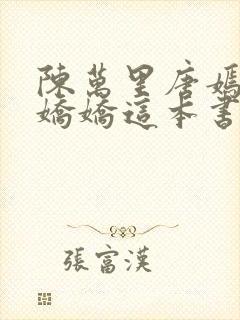 陳萬里唐嫣
嬌嬌這本書
張富漢